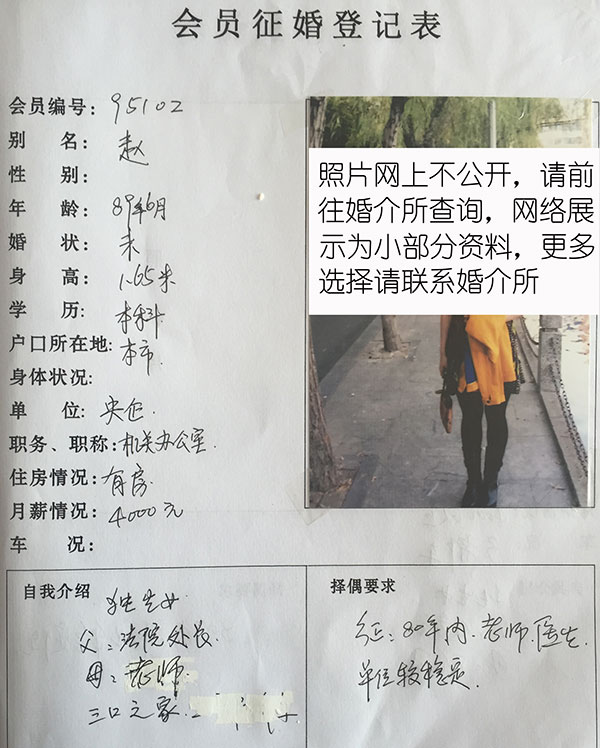 会员征婚登记表
会员编号: 95102
别 名: 赵
性 别:
年 龄: 89年6月
婚 状: 未
身 高: 1.65米
学 历: 本科
户口所在地: 本市.
身体状况:
单 位: 央企.
职务、职称: 机关办公室.
住房情况: 有房.
月薪情况: 4000元
车 况:
照片网上不公开,请前
往婚介所查询,网络展
示为小部分资料,更多
选择请联系婚介所
自我介绍
独生女
父:法院处长.
母:老师.
三口之家.
择偶要求
征:80年内.老师.医生
单位较稳定.